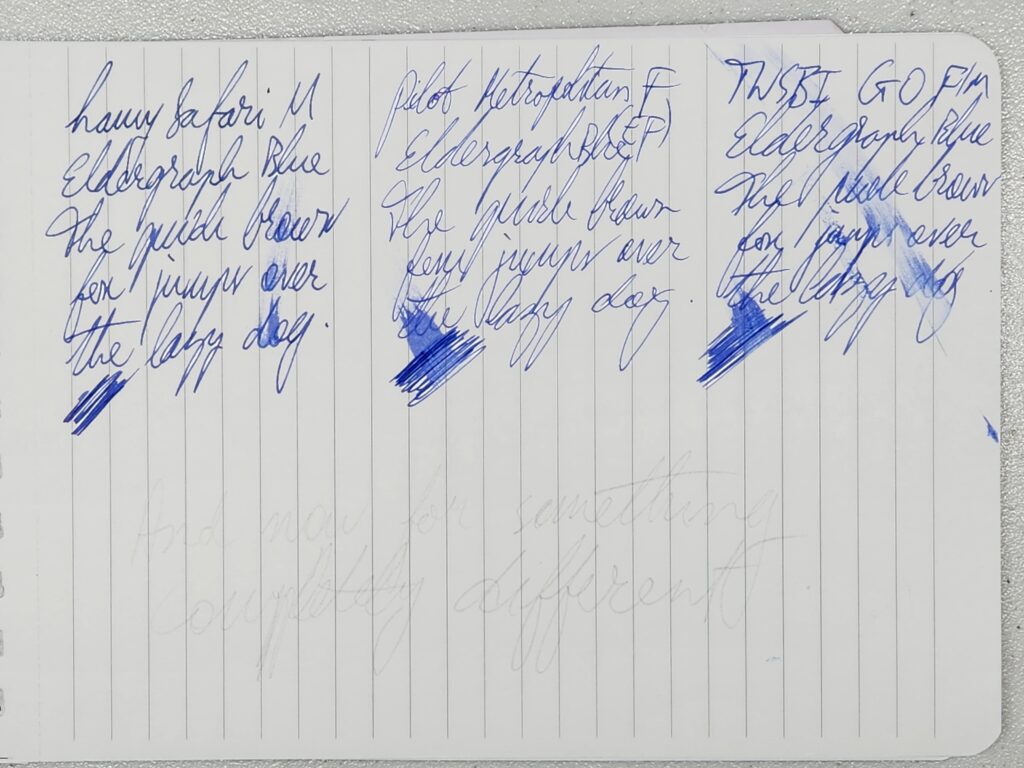 Lamy Safari M
Eldergraph Blue
The quick brown
fox jumps over
the lazy dog.
Pilot Metropolitan F
Eldergraph Blue
The quick brown
fox jumps over
the lazy dog.
TWSBI GO F/M
Eldergraph Blue
The quick brown
fox jumps over
the lazy dog
And now for something
completely different.